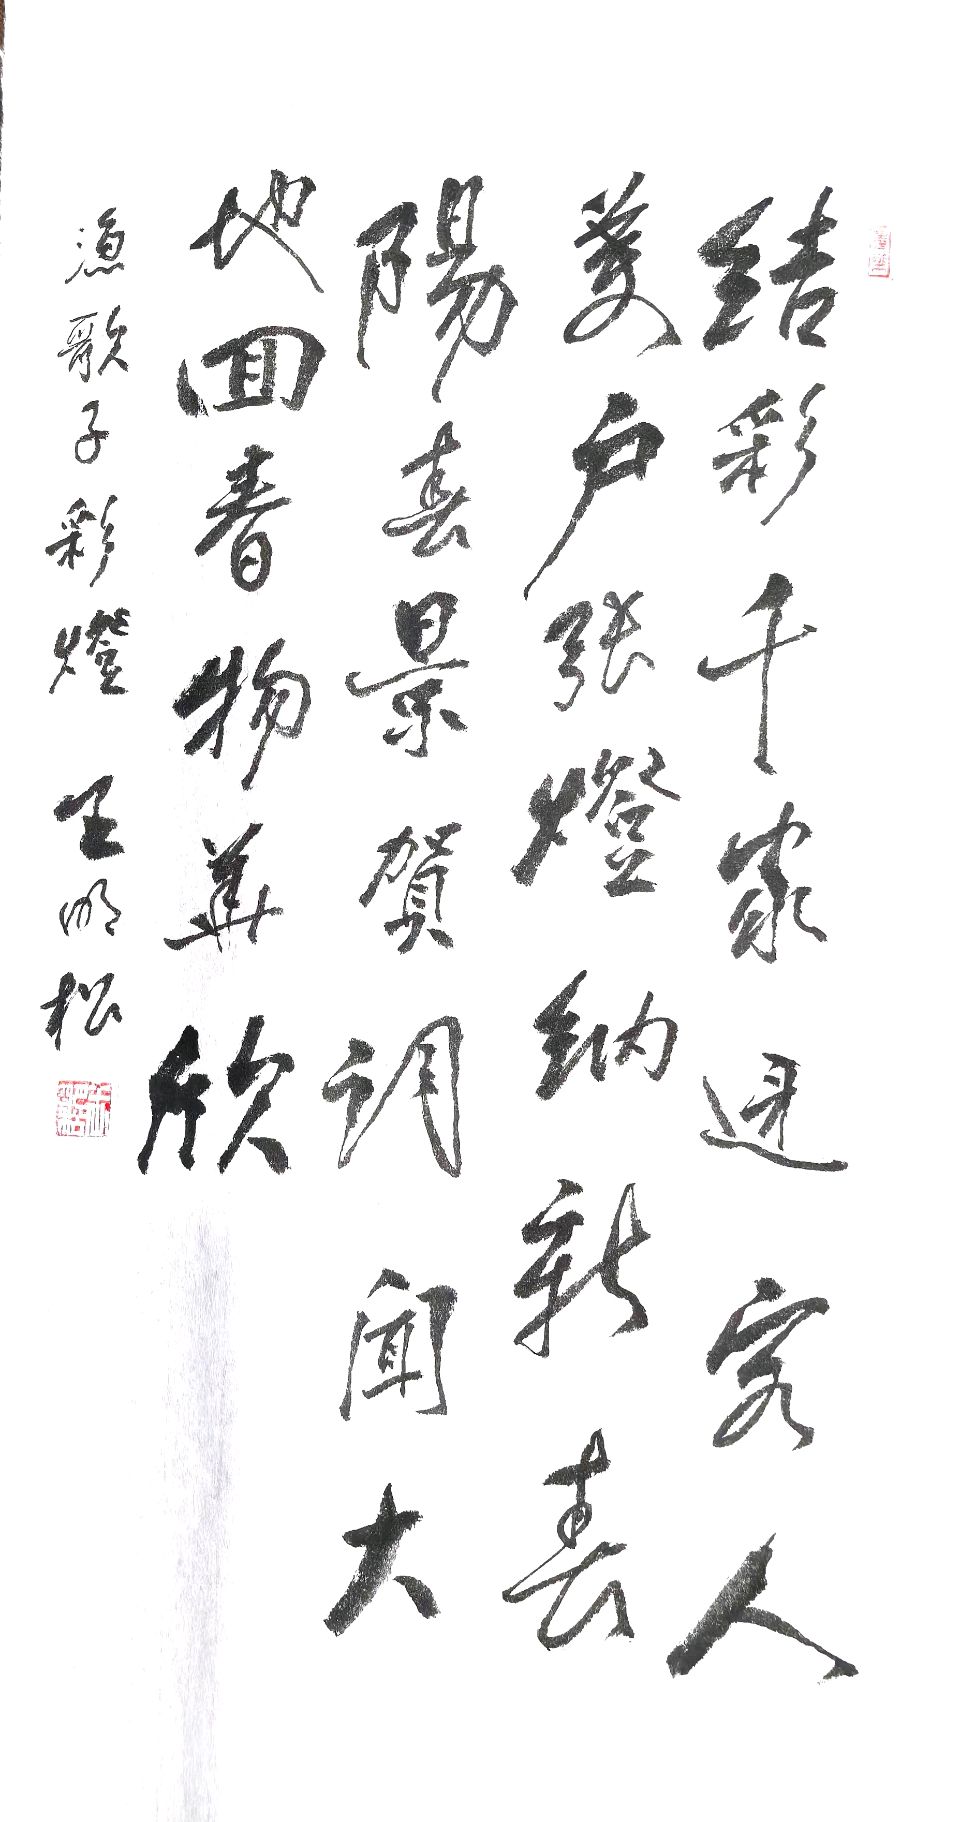 结彩千家迎客人
萬户張燈納新春
陽春景賀调闻大
地回春物華欣
漁歌子彩燈 王明松